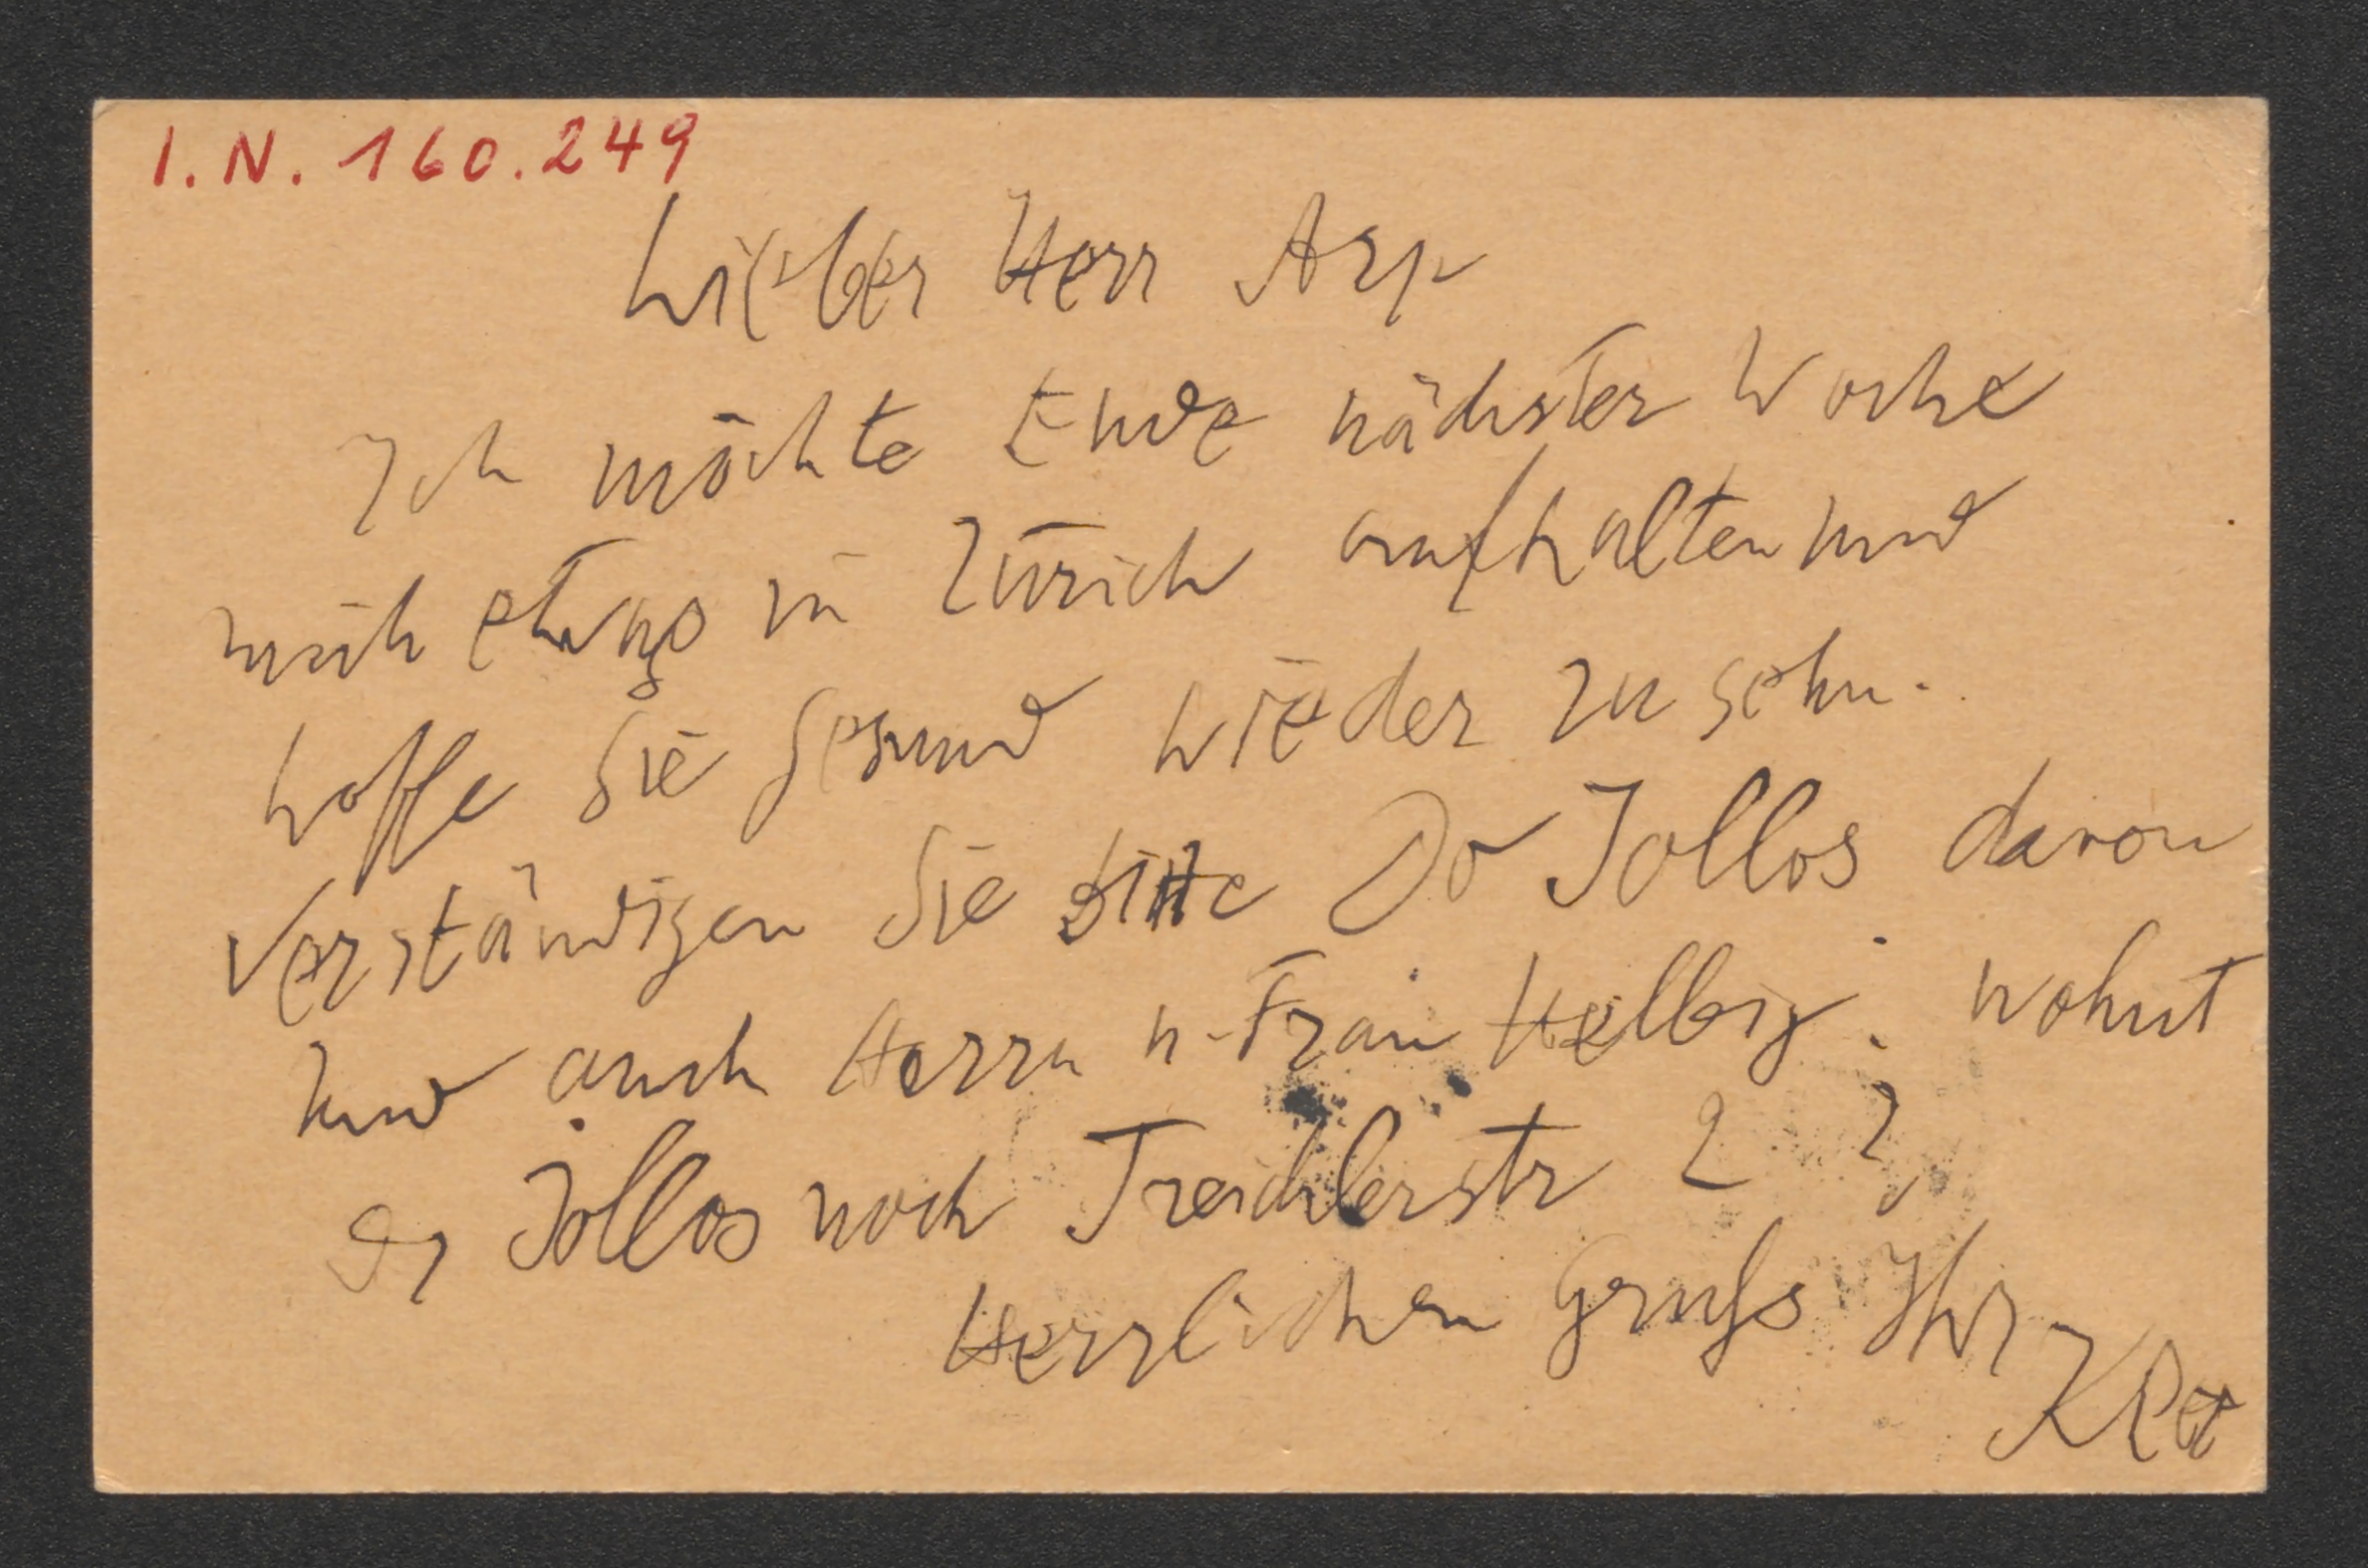 I.N. 160.249
Lieber Herr Arp
Ich möchte Ende nächster Woche
mich etwas in Zürich aufhalten und
hoffe Sie gesund wieder zu sehn.
Verständigen Sie bitte Dr Jollos davon
und auch Herrn u. Frau Helbig. wohnt
Dr Jollos noch Treichlerstr 2 ?
Herzlichen Gruß Ihr